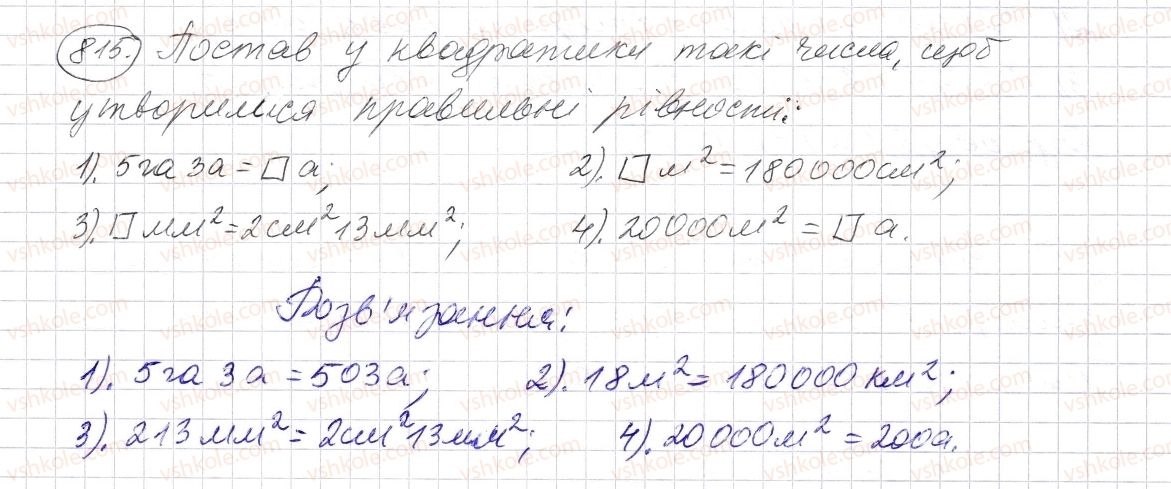 815. Постав у квадратики такі числа, щоб
утворилися правильні рівності:
1). 5га 3а = □ а; 2). □ м² = 180000см²;
3). □ мм² = 2см² 13мм²; 4). 20000м² = □ а.
Розв'язання:
1). 5га 3а = 503а; 2). 18м² = 180000км²;
3). 213мм² = 2см² 13мм²; 4). 20000м² = 200а.